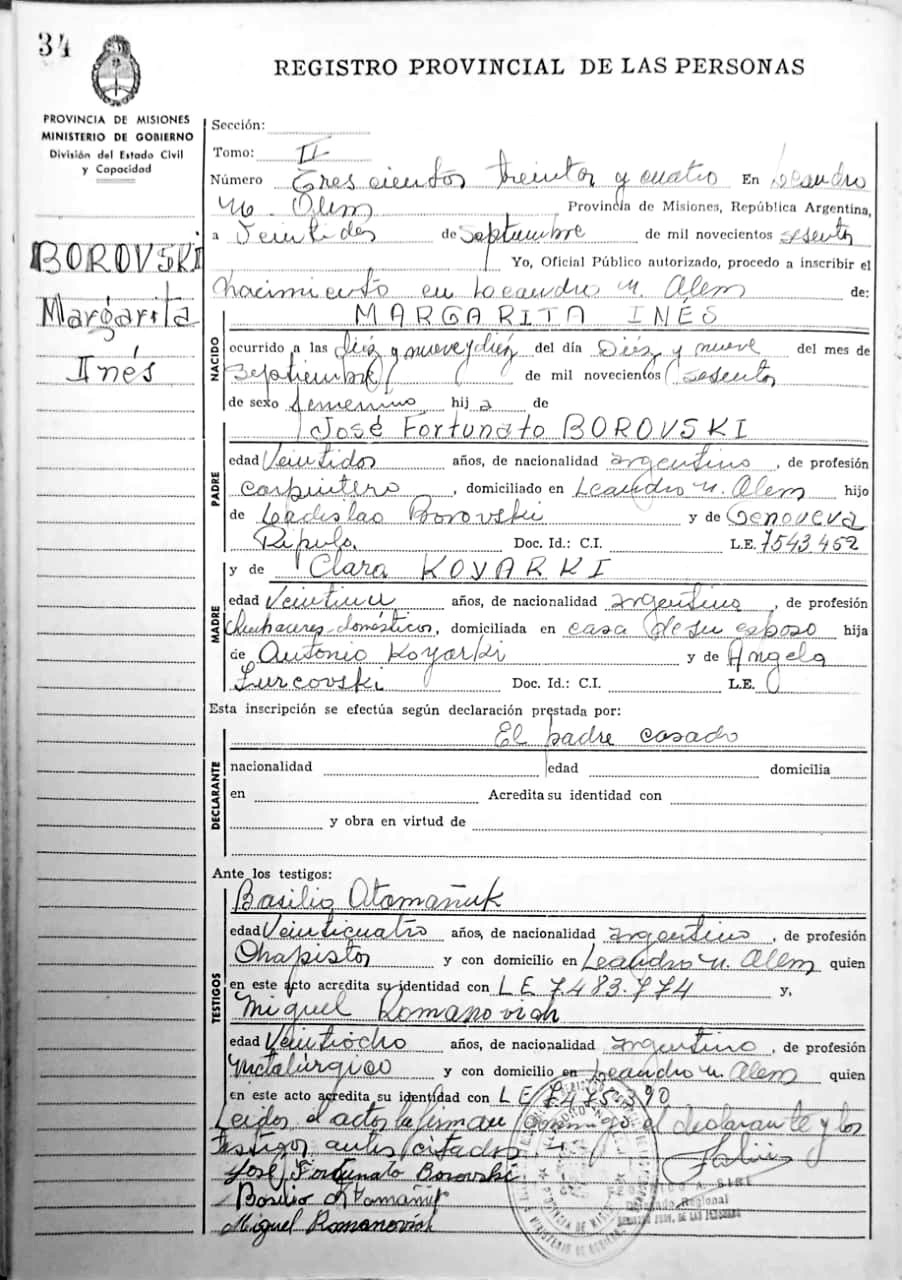 34
REGISTRO PROVINCIAL DE LAS PERSONAS
PROVINCIA DE MISIONES
MINISTERIO DE GOBIERNO
División del Estado Civil
y Capacidad
BOROVSKI
Margarita
Inés
Sección:
Tomo: II
Número Tres cientos treinta y cuatro En Leandro
N. Alem Provincia de Misiones, República Argentina,
a Veintidos de Septiembre de mil novecientos sesenta
Yo, Oficial Público autorizado, procedo a inscribir el
nacimiento en Leandro N. Alem de:
NACIDO
MARGARITA INÉS
ocurrido a las diéz y nueve y diéz del día Diéz y nueve del mes de
Septiembre de mil novecientos sesenta
de sexo femenino hija de
PADRE
José Fortunato BOROVSKI
edad Veintidos años, de nacionalidad argentino, de profesión
carpintero, domiciliado en Leandro N. Alem hijo
de Ladislao Borovski y de Genoveva
Ripula. Doc. Id.: C.I. L.E. 7543.452
MADRE
y de Clara KOYARKI
edad Veintiun años, de nacionalidad argentina, de profesión
Quehaceres domésticos, domiciliada en casa de su esposo hija
de Antonio Koyarki y de Angela
Surcovski Doc. Id.: C.I. L.E.
Esta inscripción se efectúa según declaración prestada por:
DECLARANTE
El padre casado
nacionalidad edad domicilia
en Acredita su identidad con
y obra en virtud de
Ante los testigos:
TESTIGOS
Basilio Atamañuk
edad Veinticuatro años, de nacionalidad argentino, de profesión
Chapista y con domicilio en Leandro N. Alem quien
en este acto acredita su identidad con L E 7.483.774 y,
Miguel Romanovich
edad Veintiocho años, de nacionalidad argentino, de profesión
Metalúrgico y con domicilio en Leandro N. Alem quien
en este acto acredita su identidad con L E 7.475.390
Leida el acta la firman conmigo el declarante y los
testigos antes citados.
José Fortunato Borovski
Basilio Atamañuk
Miguel Romanovich
Delegado Regional